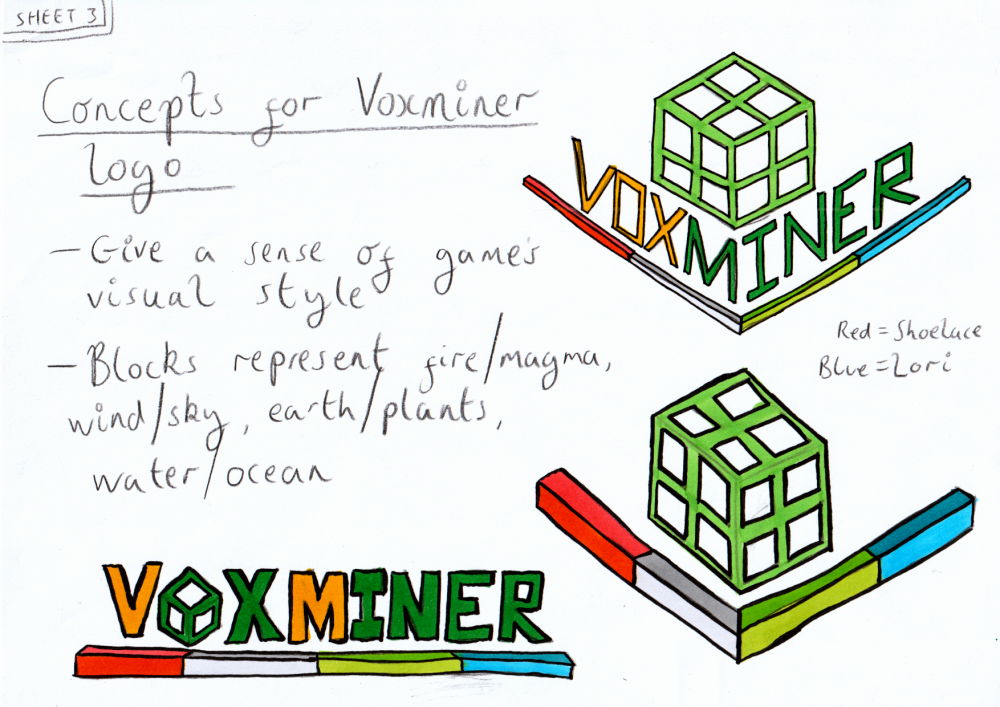 SHEET 3
Concepts for Voxminer
logo
– Give a sense of game's
visual style
– Blocks represent fire/magma,
wind/sky, earth/plants,
water/ocean
VOXMINER
Red = Shoelace
Blue = Lori
VOXMINER